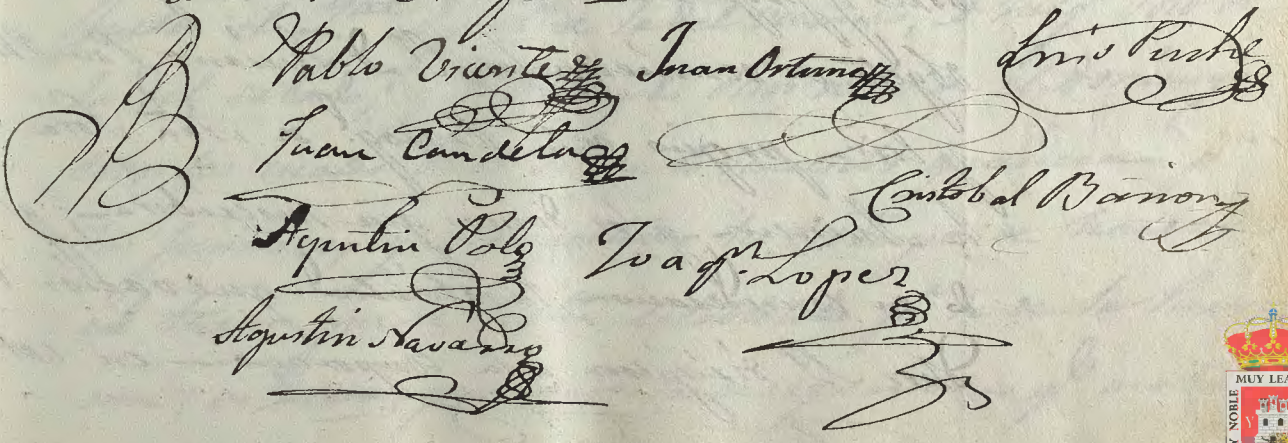 Pablo Vicente Juan Ortuño Luis Puche
Juan Candela
Cristobal Bañon
Agustin Polo Joaqn. Lopez
Agustin Navarro
MUY LEA
NOBLE